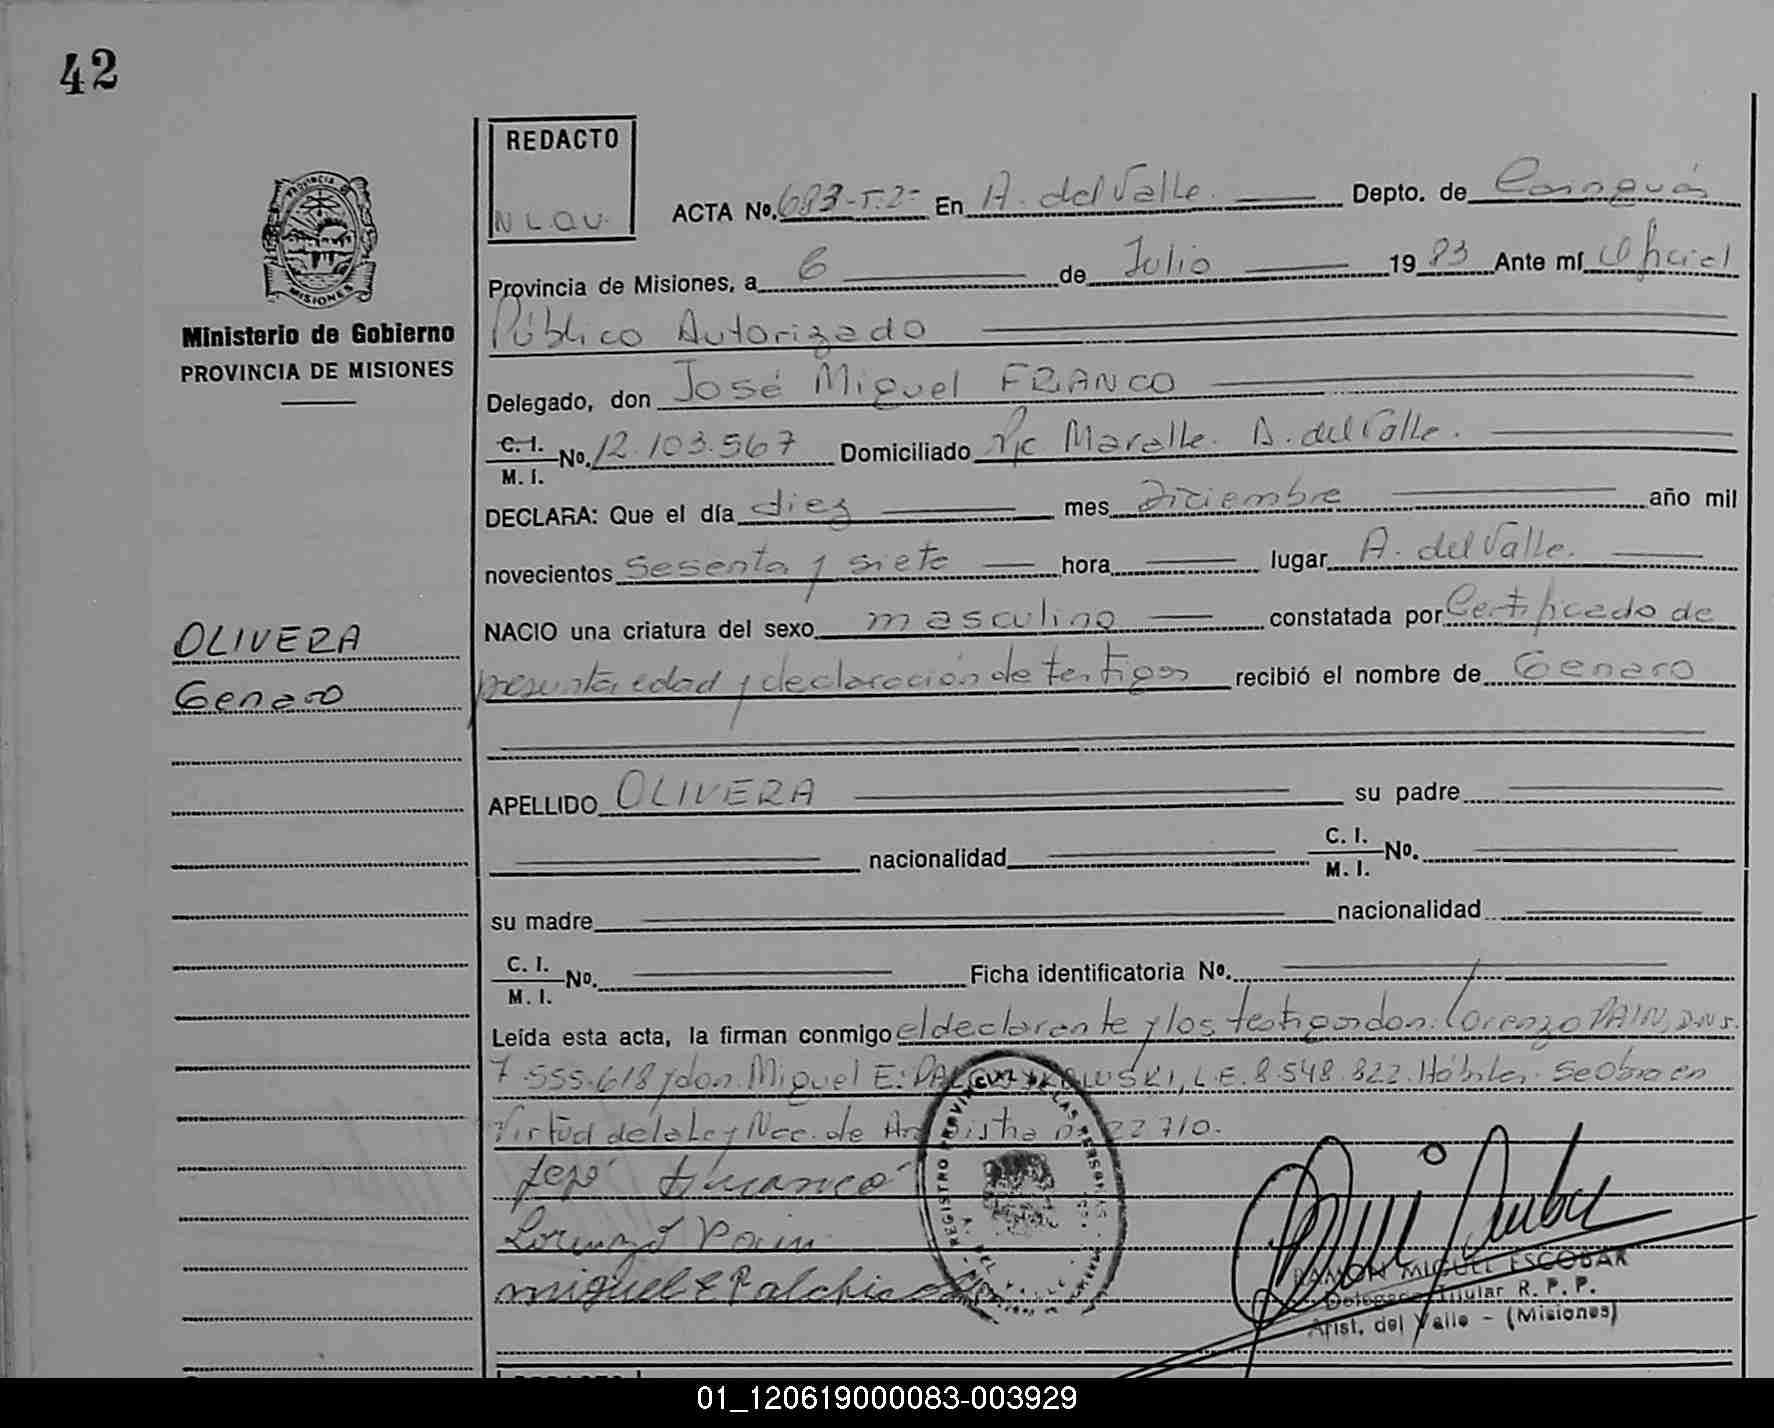 42
REDACTO
N.L.Q.V.
PROVINCIA DE
MISIONES
Ministerio de Gobierno
PROVINCIA DE MISIONES
ACTA No. 683-T.2- En A. del Valle. Depto. de Cainguás
Provincia de Misiones, a 6 de Julio 1983 Ante mí Oficial
Público Autorizado
Delegado, don José Miguel FRANCO
C. I. / M. I. No. 12.103.567 Domiciliado Pje Maralle. A. del Valle.
DECLARA: Que el día diez mes Diciembre año mil
novecientos sesenta y siete hora lugar A. del Valle.
NACIO una criatura del sexo masculino constatada por Certificado de
presunta edad y declaración de testigos recibió el nombre de Genaro
OLIVERA
Genaro
APELLIDO OLIVERA su padre
nacionalidad C. I. / M. I. No.
su madre nacionalidad
C. I. / M. I. No. Ficha identificatoria No.
Leída esta acta, la firman conmigo el declarante y los testigos don: Lorenzo PAIN, D.N.I.
7.555.618 y don Miguel E. L.E. 8.548.822. Hábiles. Se Obra en
Virtud de la Ley Nac. de Amnistía nº 22710.
José Franco
Lorenzo Pain
Miguel E
REGISTRO PROVINCIAL DE LAS PERSONAS
RAMON MIGUEL ESCOBAR
Delegado Titular R. P. P.
Arist. del Valle - (Misiones)
01_120619000083-003929